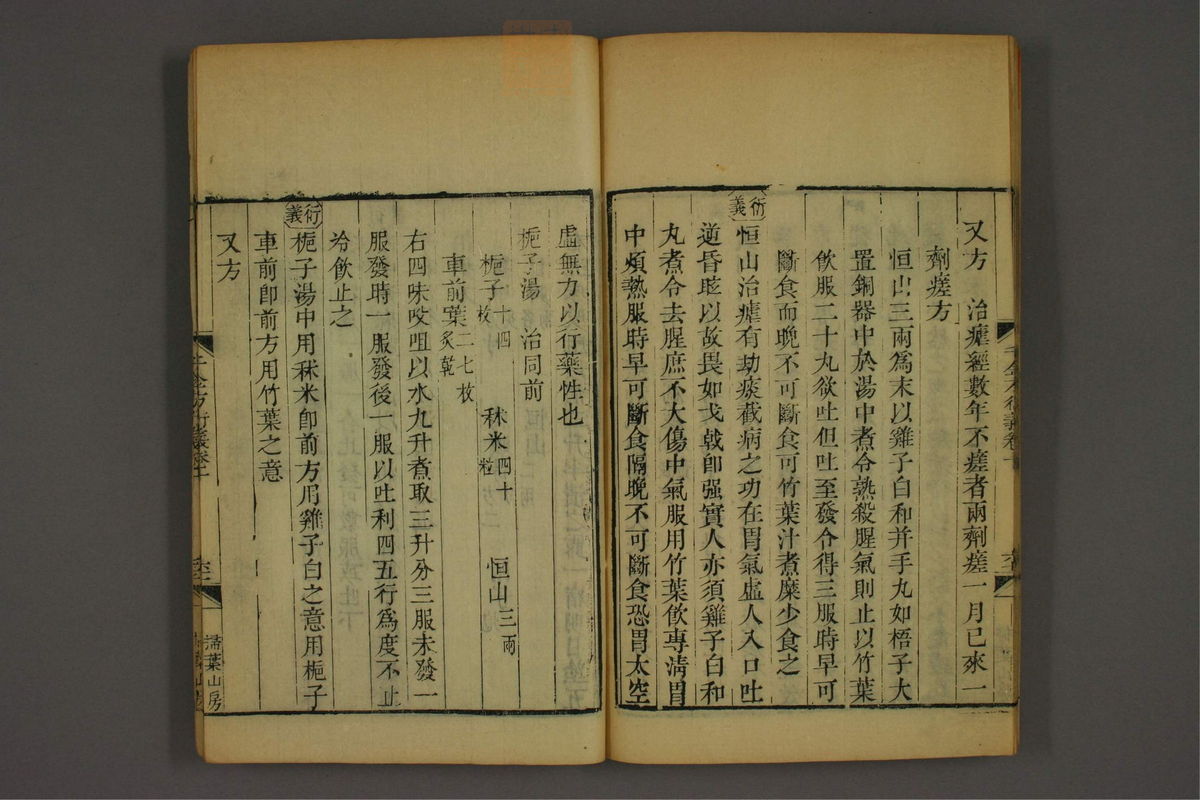 又方　治瘧經數年不瘥者兩劑瘥一月已來一
劑瘥方
恒山三兩爲末以雞子白和并手丸如梧子大
置銅器中於湯中煮令熟殺腥氣則止以竹葉
飲服二十丸欲吐但吐至發令得三服時早可
斷食而晚不可斷食可竹葉汁煮糜少食之
衍義
恒山治瘧有劫痰截病之功在胃氣虛人入口吐
逆昏眩以故畏如戈戟卽强實人亦須雞子白和
丸煮令去腥庶不大傷中氣服用竹葉飲專淸胃
中煩熱服時早可斷食隔晚不可斷食恐胃太空
虛無力以行藥性也
梔子湯　治同前
梔子十四枚　秫米四十粒　恒山三兩
車前葉二七枚炙乾
右四味㕮咀以水九升煮取三升分三服未發一
服發時一服發後一服以吐利四五行爲度不止
冷飲止之
衍義
梔子湯中用秫米卽前方用雞子白之意用梔子
車前卽前方用竹葉之意
又方
千金方衍義卷十
掃葉山房